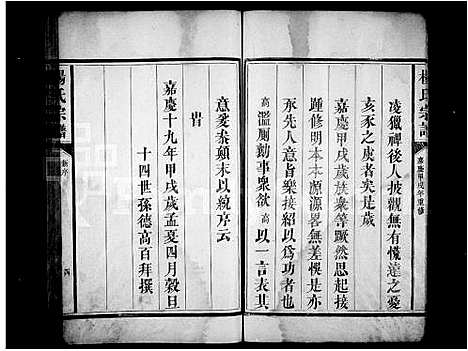 楊氏宗譜
嘉慶甲戌年重修
凌獵裨後人披觀無有慌達之憂
亥豕之虞者矣是歲
嘉慶甲戌歲族衆等厥然思起接
踵修明本本源源畧無差悞是亦
永先人意旨樂接紹以為功者也
高濫厠勷事衆欲高以一言表其
意爰泰顛末以統序云
旹
嘉慶十九年甲戌歲孟夏四月穀旦
十四世孫德高百拜撰
楊氏宗譜
新序
四